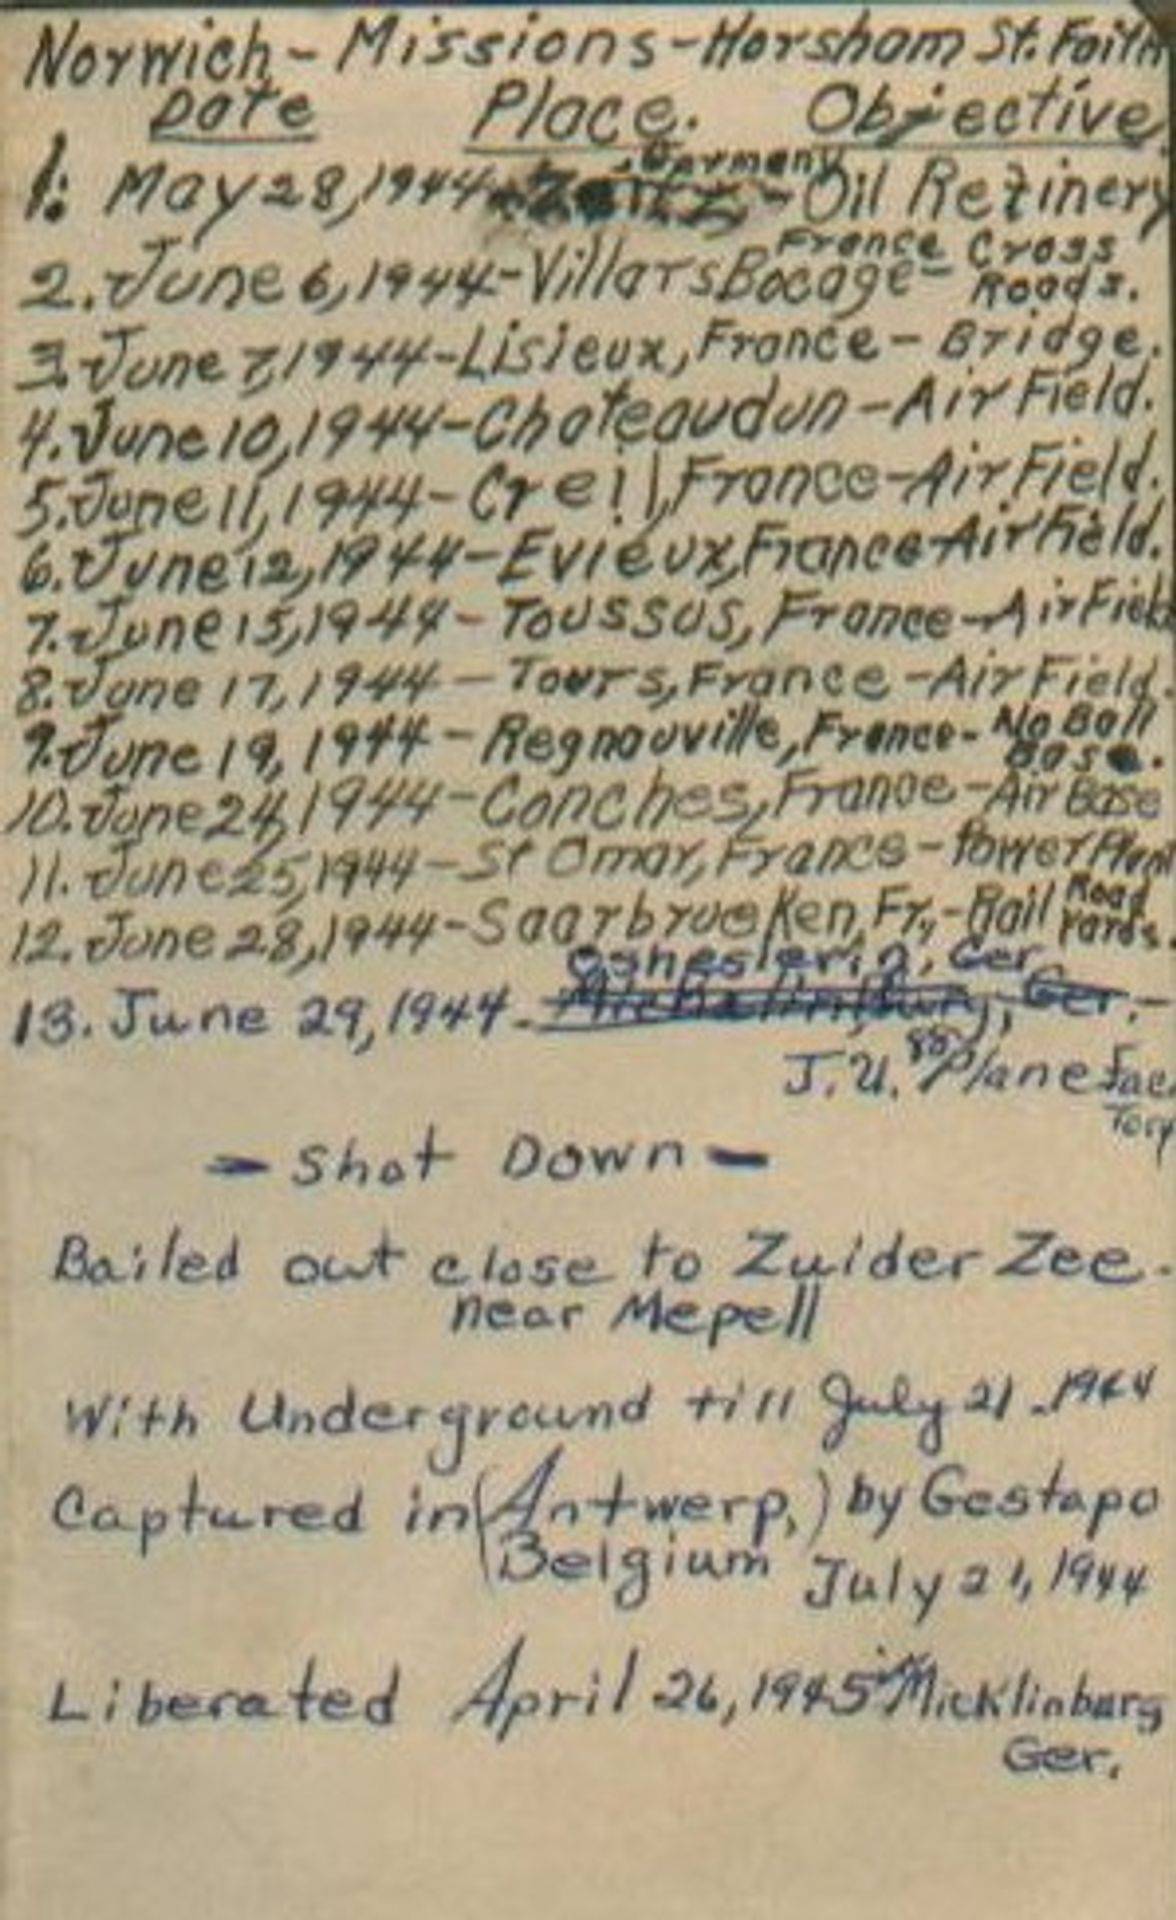 Norwich - Missions - Horsham St. Faith
Date Place. Objective
1. May 28, 1944 - Zeitz, Germany - Oil Refinery
2. June 6, 1944 - Villars Bocage - France Cross Roads.
3. June 7, 1944 - Lisieux, France - Bridge.
4. June 10, 1944 - Chateaudun - Air Field.
5. June 11, 1944 - Creil, France - Air Field.
6. June 12, 1944 - Evieux, France - Air Field.
7. June 15, 1944 - Toussus, France - Air Field
8. June 17, 1944 - Tours, France - Air Field.
9. June 19, 1944 - Regnouville, France - No Ball Base.
10. June 24, 1944 - Conches, France - Air Base
11. June 25, 1944 - St Omar, France - Power Plant
12. June 28, 1944 - Saarbrucken, Fr., - Rail Road Yards.
Ger.
13. June 29, 1944 - Ger. -
J.U. 88 Plane Factory
- Shot Down -
Bailed out close to Zuider Zee -
near Mepell
With Underground till July 21 - 1944
Captured in (Antwerp,) by Gestapo
Belgium July 21, 1944
Liberated April 26, 1945 Micklinburg
Ger.